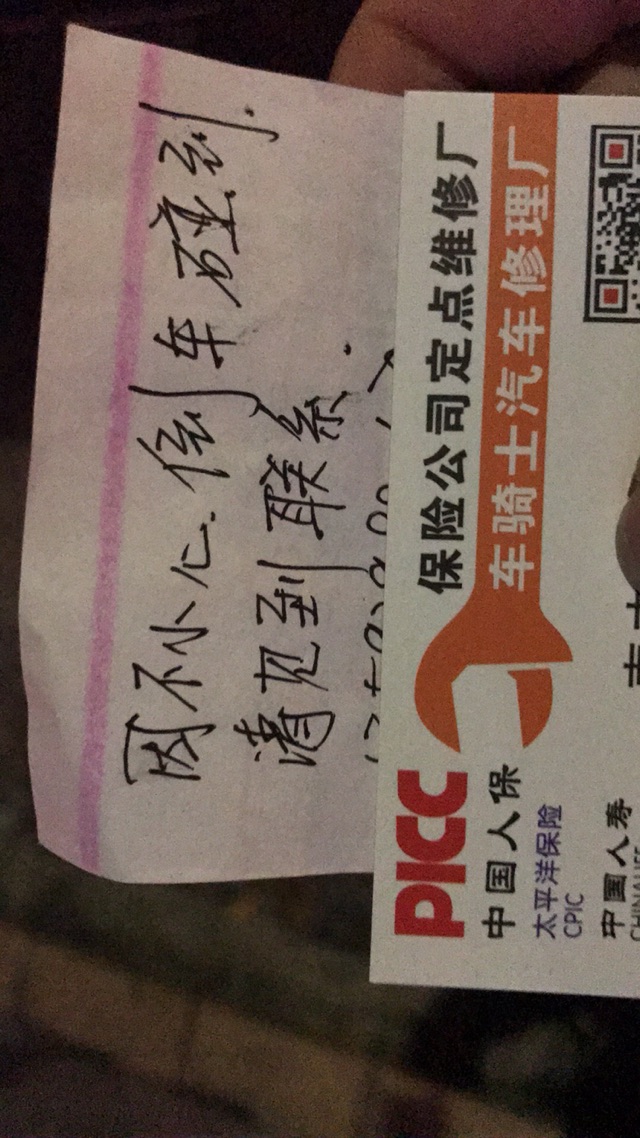 因不小心.倒车碰到.
请见到联系.
保险公司定点维修厂
车骑士汽车修理厂
PICC
中国人保
太平洋保险
CPIC
中国人寿